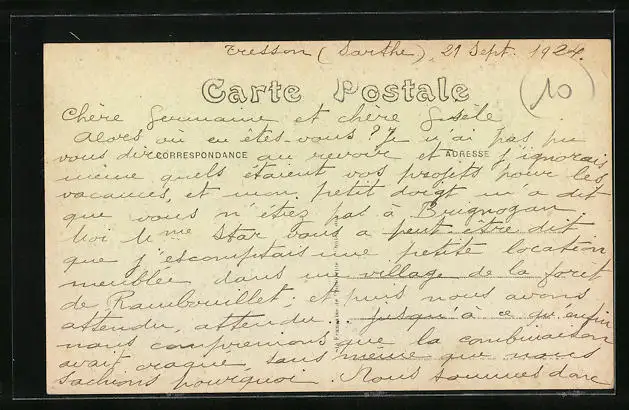 Tresson (Sarthe), 21 Sept. 1924.
10
Carte Postale
Chère Germaine et chère Gisèle
Alors où en êtes-vous ? Je n'ai pas pu
vous dire au revoir et j'ignorais
CORRESPONDANCE ADRESSE
même quels étaient vos projets pour les
vacances, et mon petit doigt m'a dit
que vous n'étiez pas à Brignogan.
Moi Mme Star vous a peut-être dit
que j'escomptais une petite location
meublée dans un village de la forêt
de Rambouillet, et puis nous avons
attendu, attendu. Jusqu'à ce qu'enfin
nous comprenions que la combinaison
avait craqué, sans même que nous
sachions pourquoi. Nous sommes donc